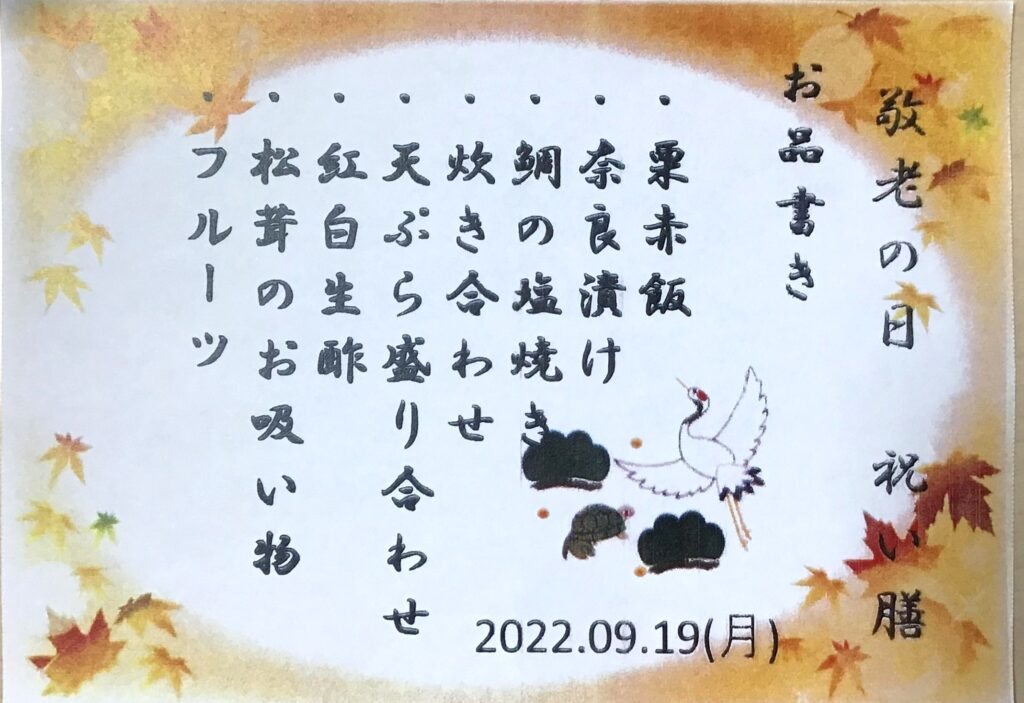 敬老の日 祝い膳
お品書き
・栗赤飯
・奈良漬け
・鯛の塩焼き
・炊き合わせ
・天ぷら盛り合わせ
・紅白生酢
・松茸のお吸い物
・フルーツ
2022.09.19(月)